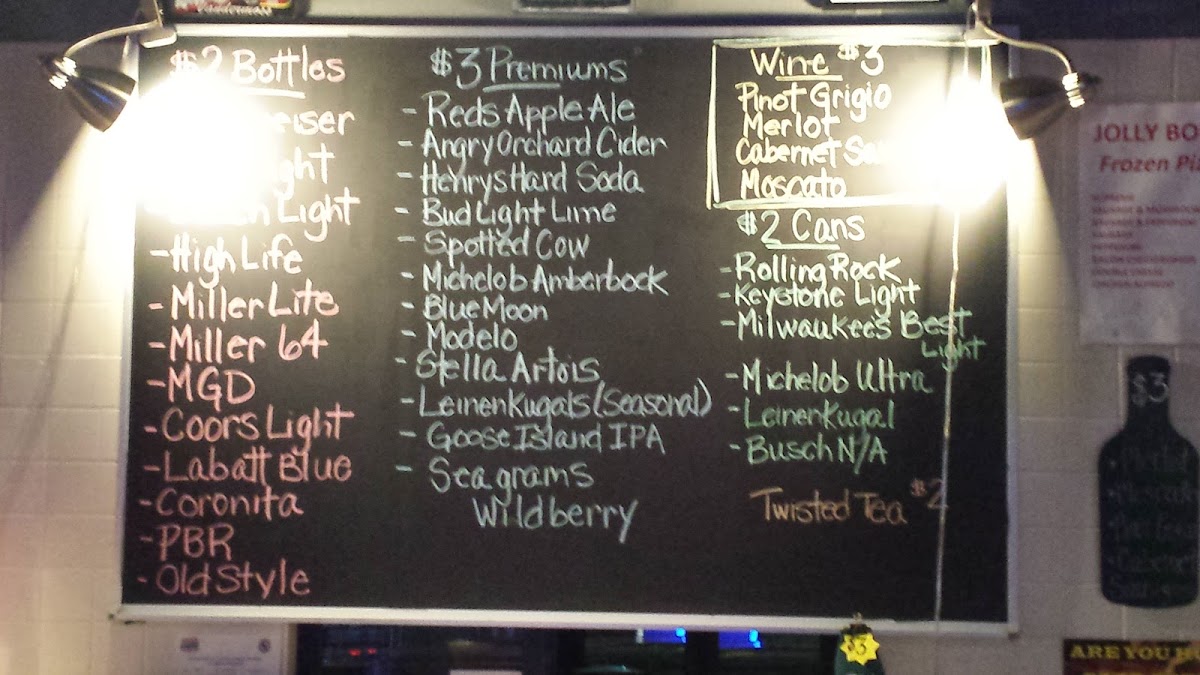 $2 Bottles
Light
- High Life
- Miller Lite
- Miller 64
- MGD
- Coors Light
- Labatt Blue
- Coronita
- PBR
- Old Style
$3 Premiums
- Reds Apple Ale
- Angry Orchard Cider
- Henrys Hard Soda
- Bud Light Lime
- Spotted Cow
- Michelob Amberbock
- Blue Moon
- Modelo
- Stella Artois
- Leinenkugals (Seasonal)
- Goose Island IPA
- Seagrams
Wildberry
Wine $3
Pinot Grigio
Merlot
Cabernet
Moscato
$2 Cans
- Rolling Rock
- Keystone Light
- Milwaukee's Best
Light
- Michelob Ultra
- Leinenkugal
- Busch N/A
Twisted Tea $2
JOLLY
Frozen
$3
$3
ARE YOU